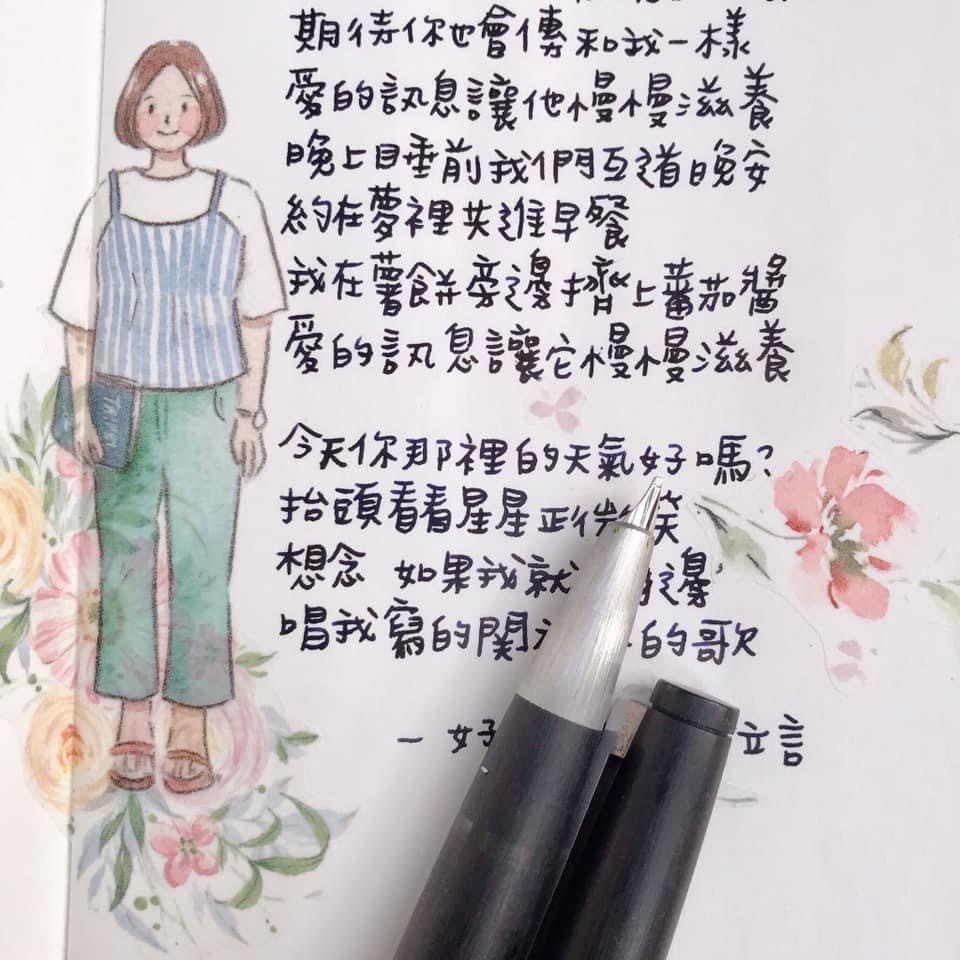 期待你也會傳和我一樣
愛的訊息讓他慢慢滋養
晚上睡前我們互道晚安
約在夢裡共進早餐
我在薯餅旁邊擠上蕃茄醬
愛的訊息讓它慢慢滋養
今天你那裡的天氣好嗎?
抬頭看看星星正微笑
想念 如果我就 邊
唱我寫的關 的歌
— 好 立言